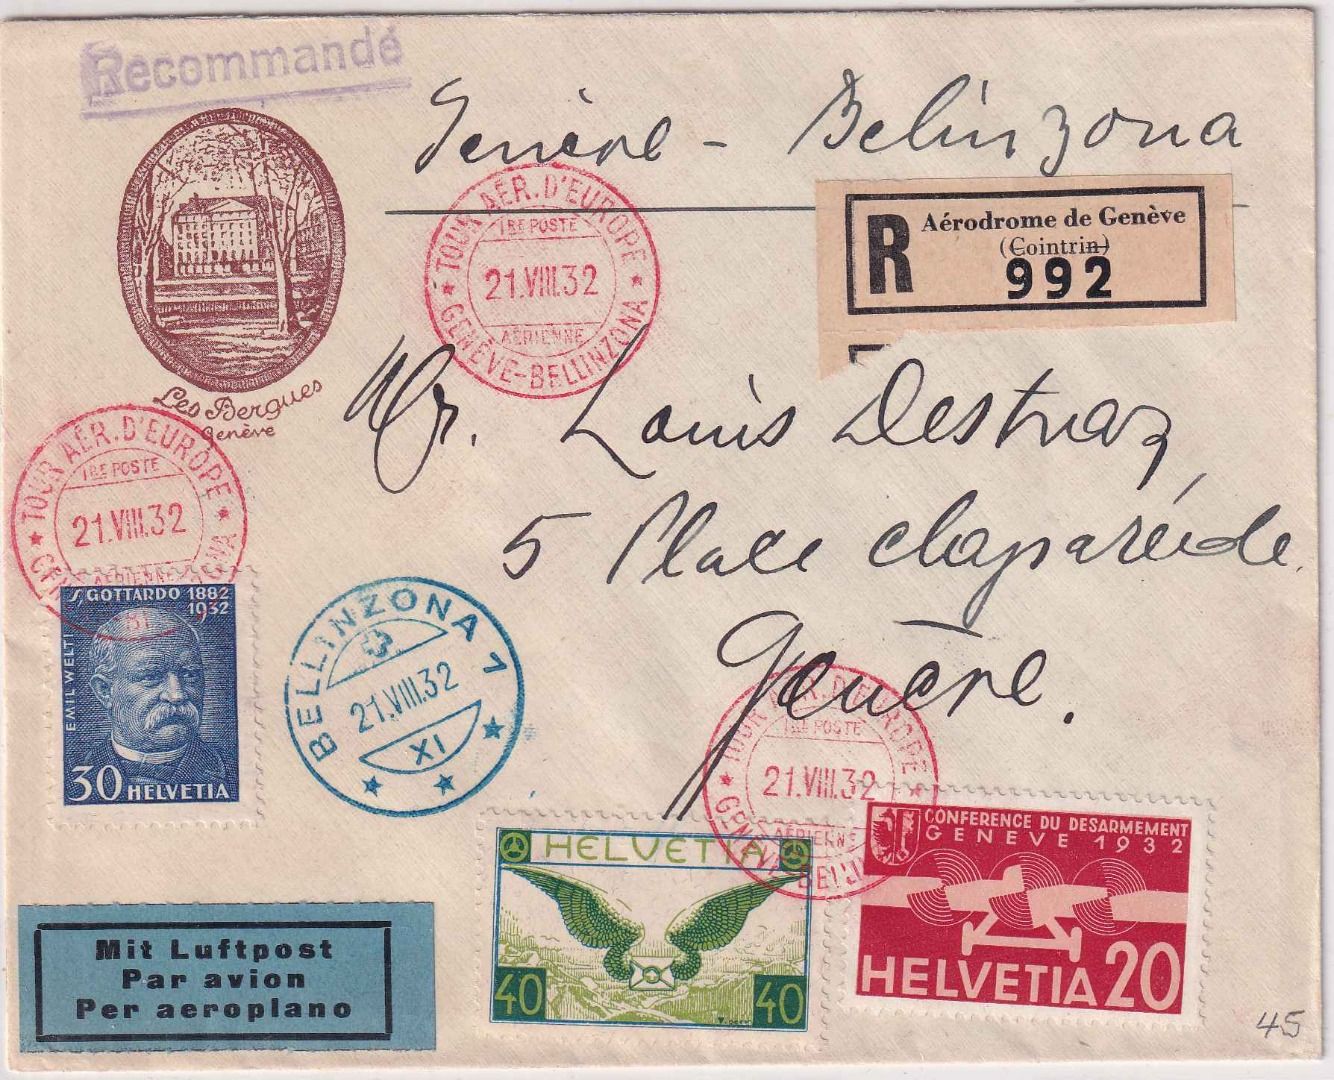 Recommandé
Genève - Belinzona
TOUR AÉR. D'EUROPE
1RE POSTE
21.VIII.32
AÉRIENNE
GENÈVE-BELLINZONA
R
Aérodrome de Genève
(Cointrin)
992
Les Bergues
Genève
Mr. Louis Destraz
5 Place claparéide
Genève.
TOUR AÉR. D'EUROPE
1RE POSTE
21.VIII.32
AÉRIENNE
S. GOTTARDO 1882
1932
EMIL WELTI
30 HELVETIA
BELLINZONA 1
21.VIII.32
XI
TOUR AÉR. D'EUROPE
1RE POSTE
21.VIII.32
AÉRIENNE
GENÈVE-BELLIN
HELVETIA
40 40
CONFERENCE DU DESARMEMENT
GENEVE 1932
HELVETIA 20
Mit Luftpost
Par avion
Per aeroplano
45